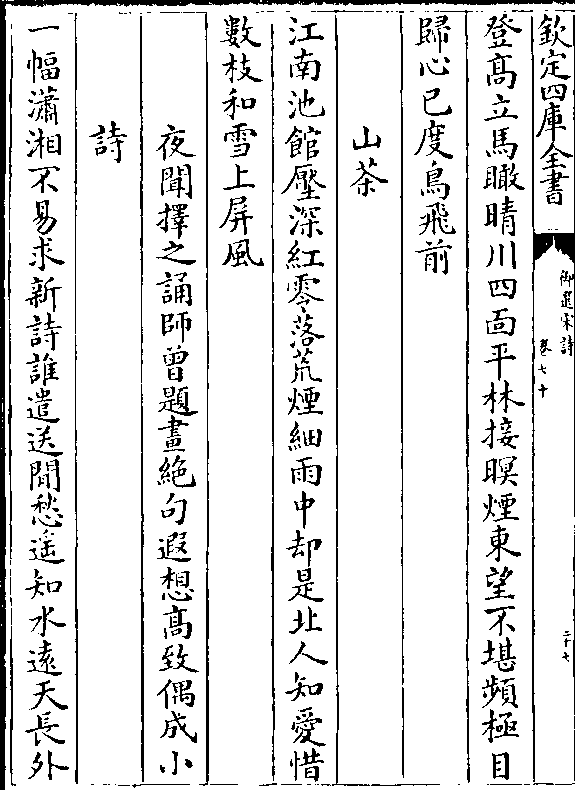 欽定四庫全書
御選宋詩
卷七十
二十七
登髙立馬瞰晴川四靣平林接暝煙東望不堪頻極目
歸心已度鳥飛前
山茶
江南池館壓深紅零落荒煙細雨中却是北人知愛惜
數枝和雪上屏風
夜聞擇之誦師曾題畫絶句遐想髙致偶成小
詩
一幅瀟湘不易求新詩誰遣送閒愁遥知水逺天長外